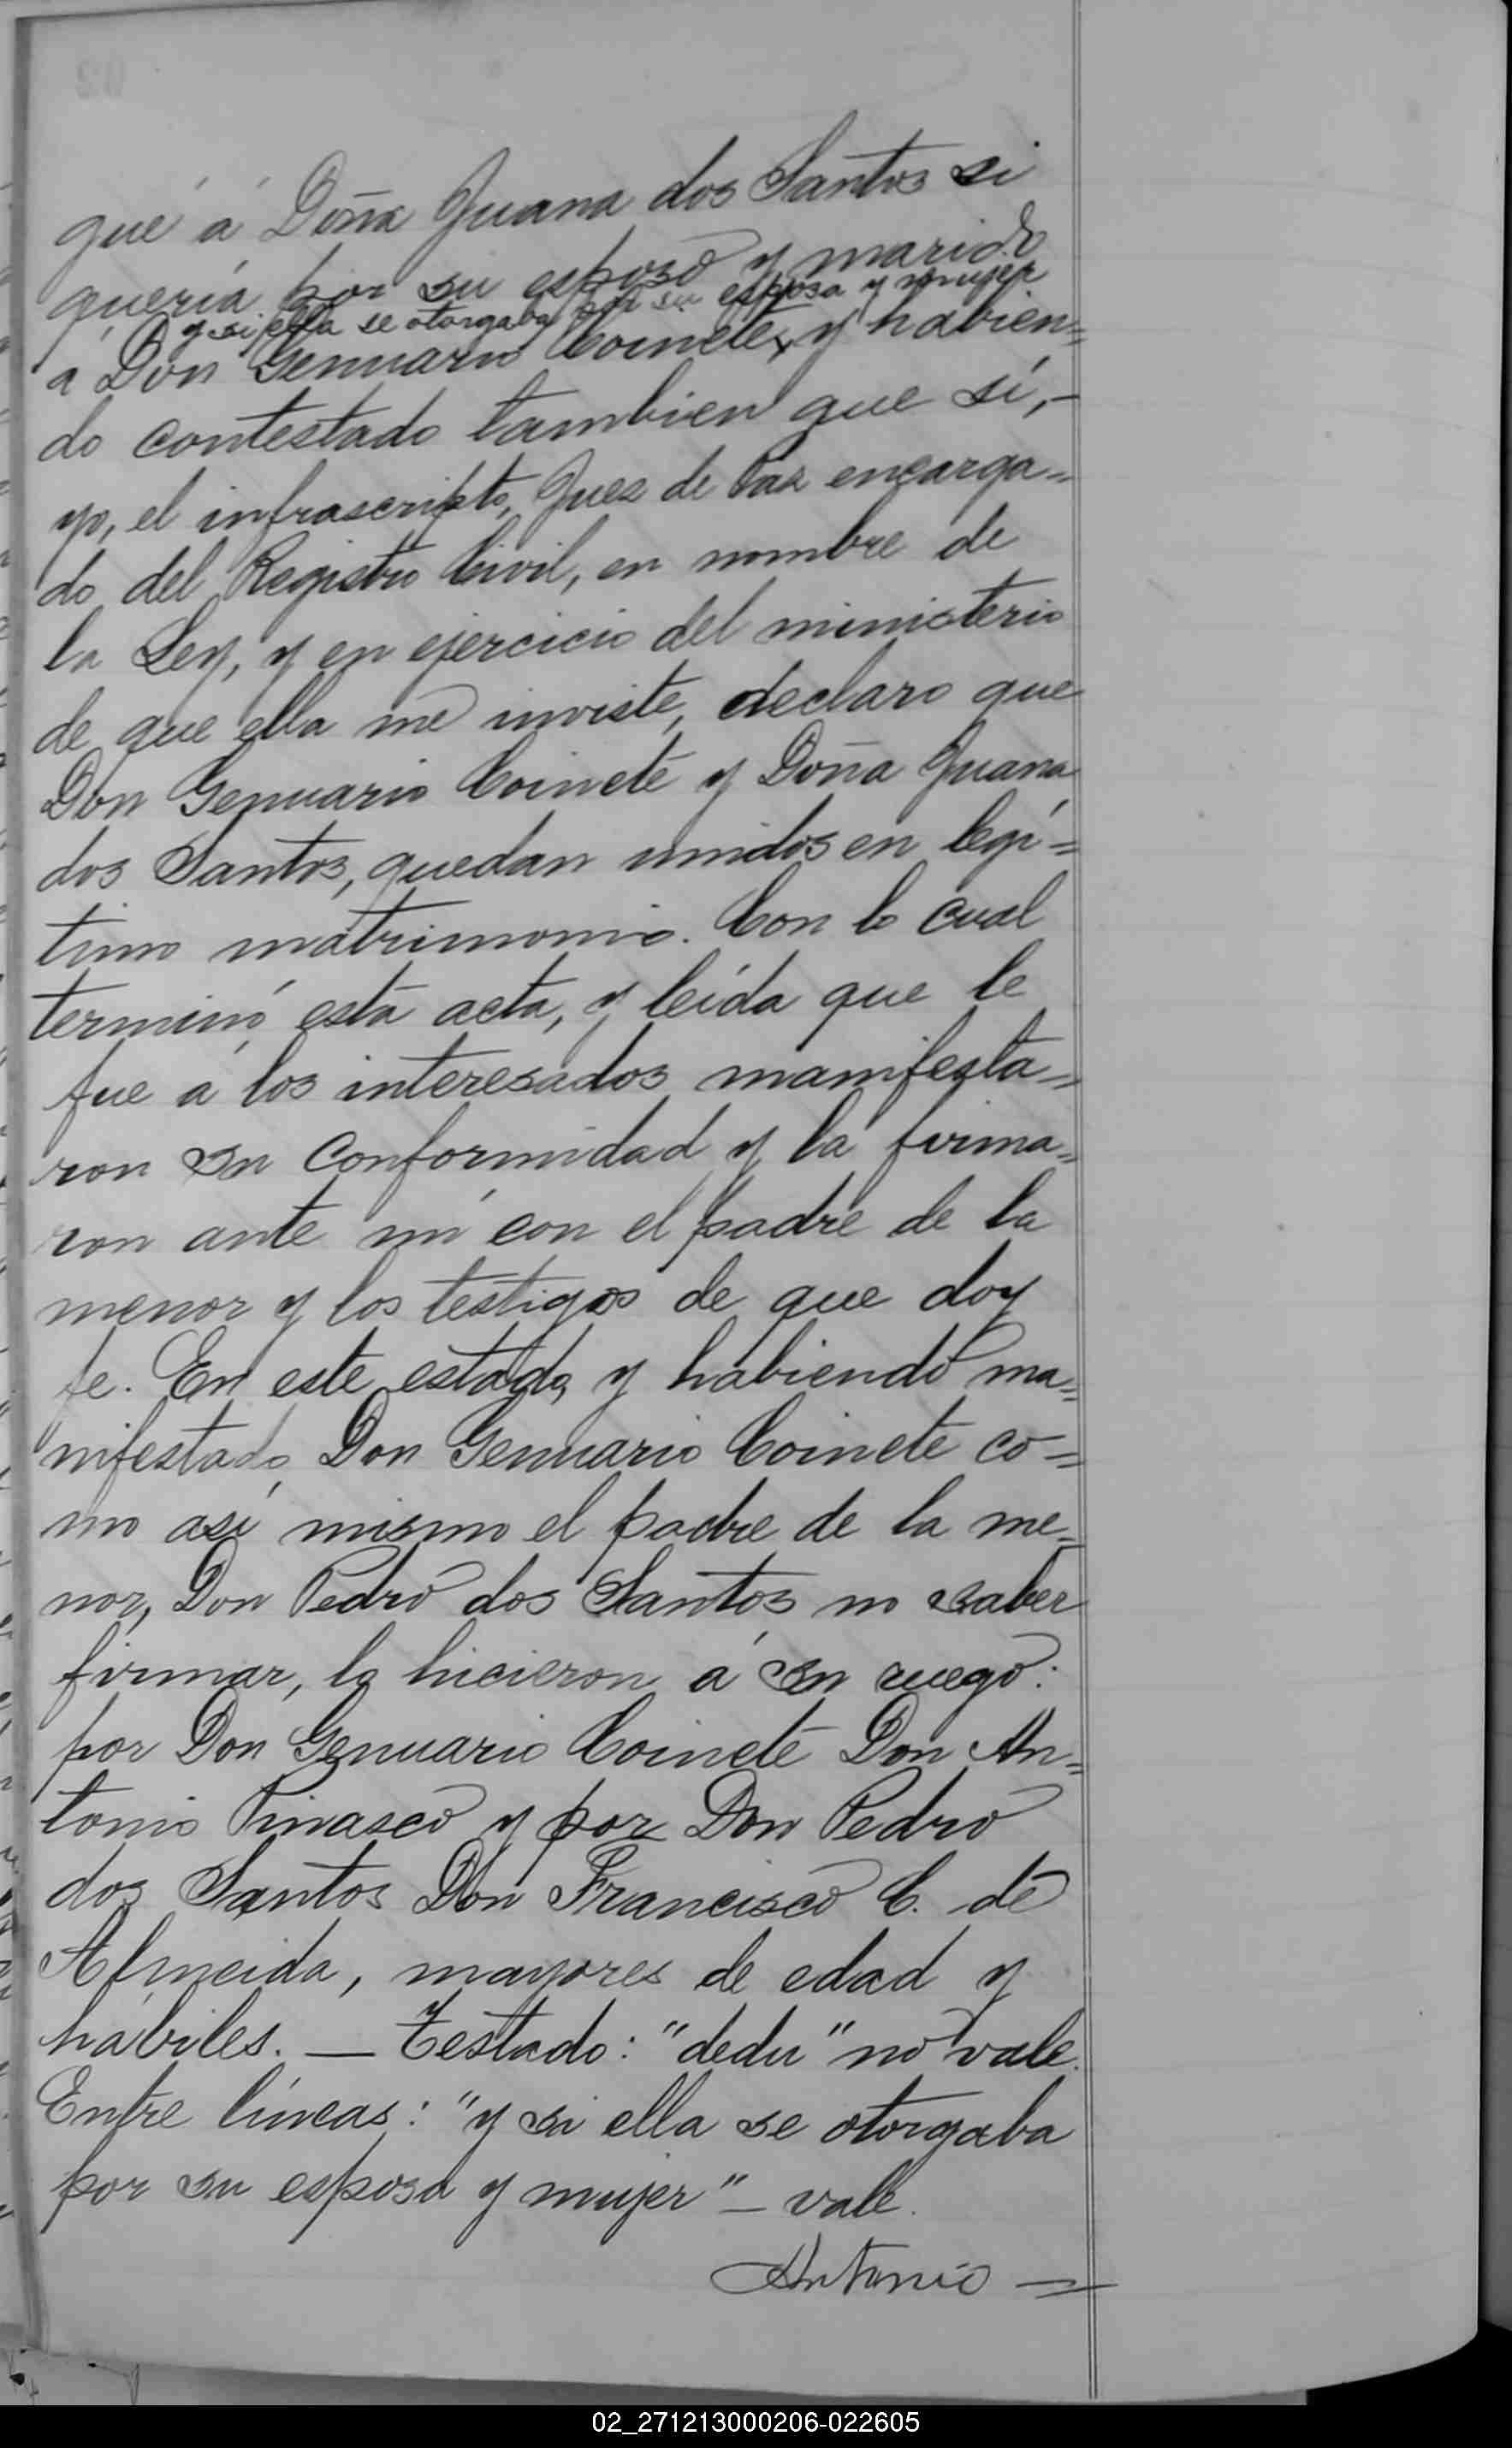 gué á Doña Juana dos Santos si
quería por su esposo y marido
y si ella se otorgaba por su esposa y mujer
a Don Genuario Coinete, y habien=
do contestado tambien que sí,-
yo, el infrascripto, Juez de Paz encarga=
do del Registro Civil, en nombre de
la Ley, y en ejercicio del ministerio
de que ella me inviste, declaro que
Don Genuario Coinete y Doña Juana
dos Santos, quedan unidos en legí=
timo matrimonio. Con lo cual
terminó esta acta, y leída que le
fue a los interesados manifesta=
ron su conformidad y la firma=
ron ante mí con el padre de la
menor y los testigos de que doy
fe. En este estado, y habiendo ma=
nifestado Don Genuario Coinete co=
mo así mismo el padre de la me=
nor, Don Pedro dos Santos no saber
firmar, lo hicieron á su ruego:
por Don Genuario Coinete Don An=
tonio Pinasco y por Don Pedro
dos Santos Don Francisco C. de
Almeida, mayores de edad y
hábiles. — Testado: "dedu" no vale.
Entre líneas: "y si ella se otorgaba
por su esposa y mujer" — vale.
Antonio =
02_271213000206-022605